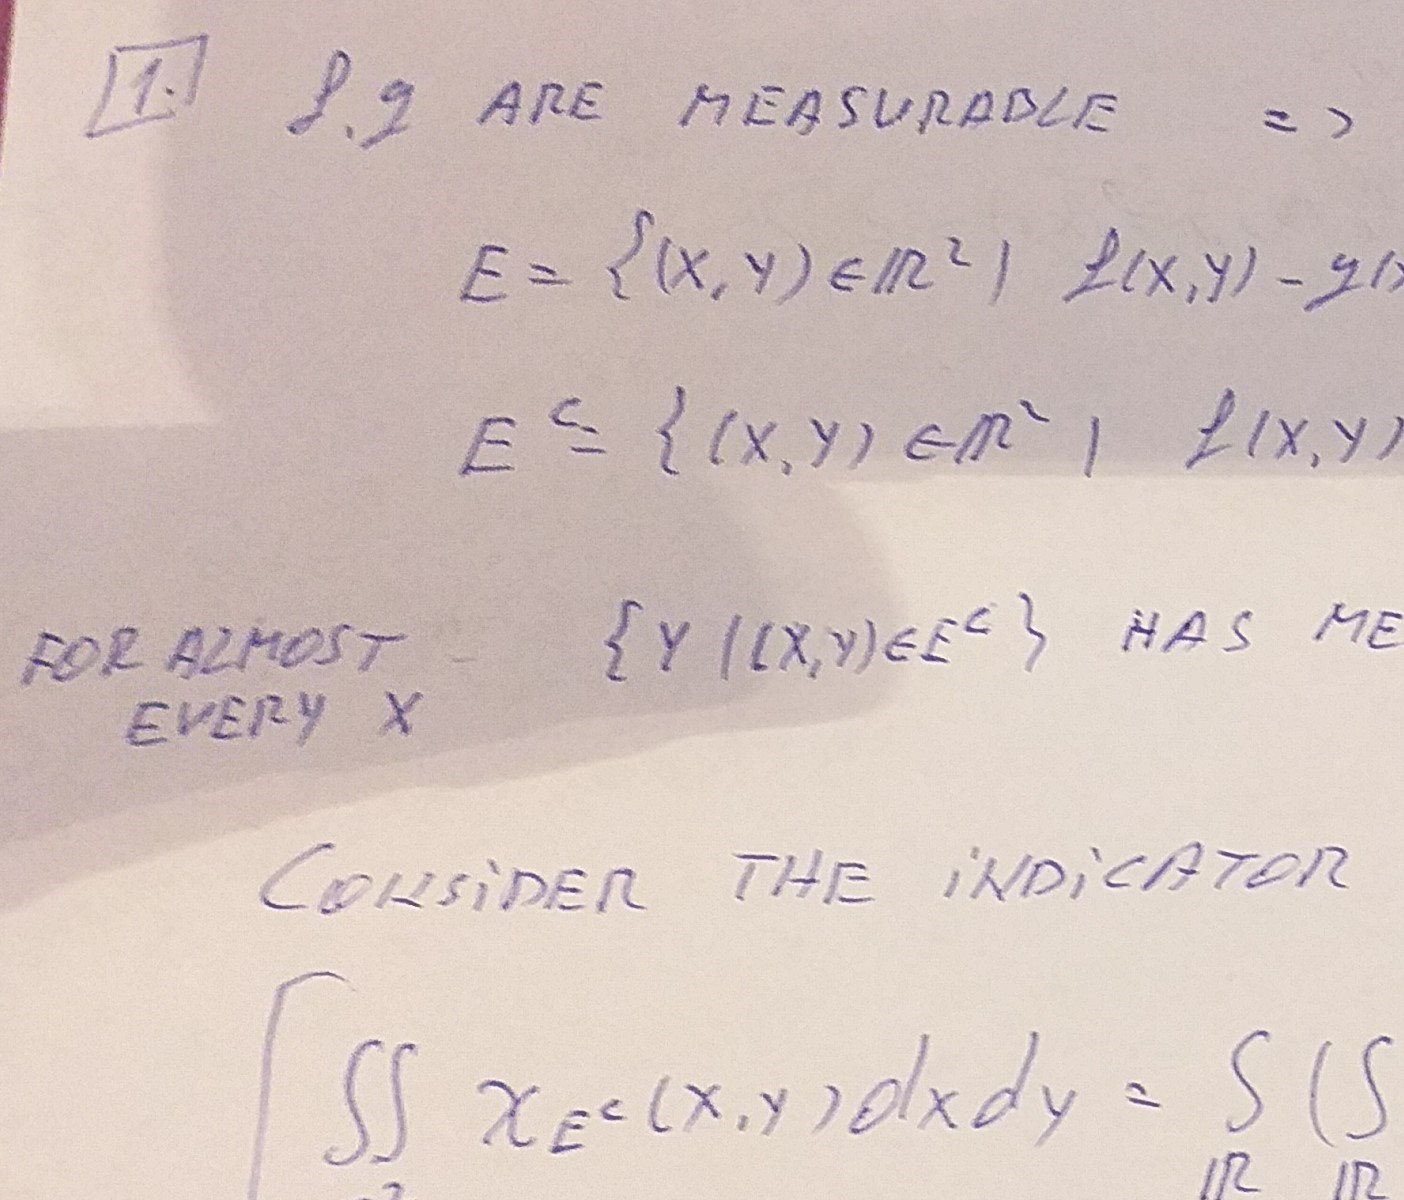 1. f, g ARE MEASURABLE =>
E = {(X, Y) ∈ ℝ² | f(X, Y) - g(X
Eᶜ = {(X, Y) ∈ ℝ² | f(X, Y)
FOR ALMOST {Y | (X, Y) ∈ Eᶜ} HAS ME
EVERY X
CONSIDER THE INDICATOR
∬ χ_Eᶜ (X, Y) dx dy = ∫ (∫
ℝ ℝ